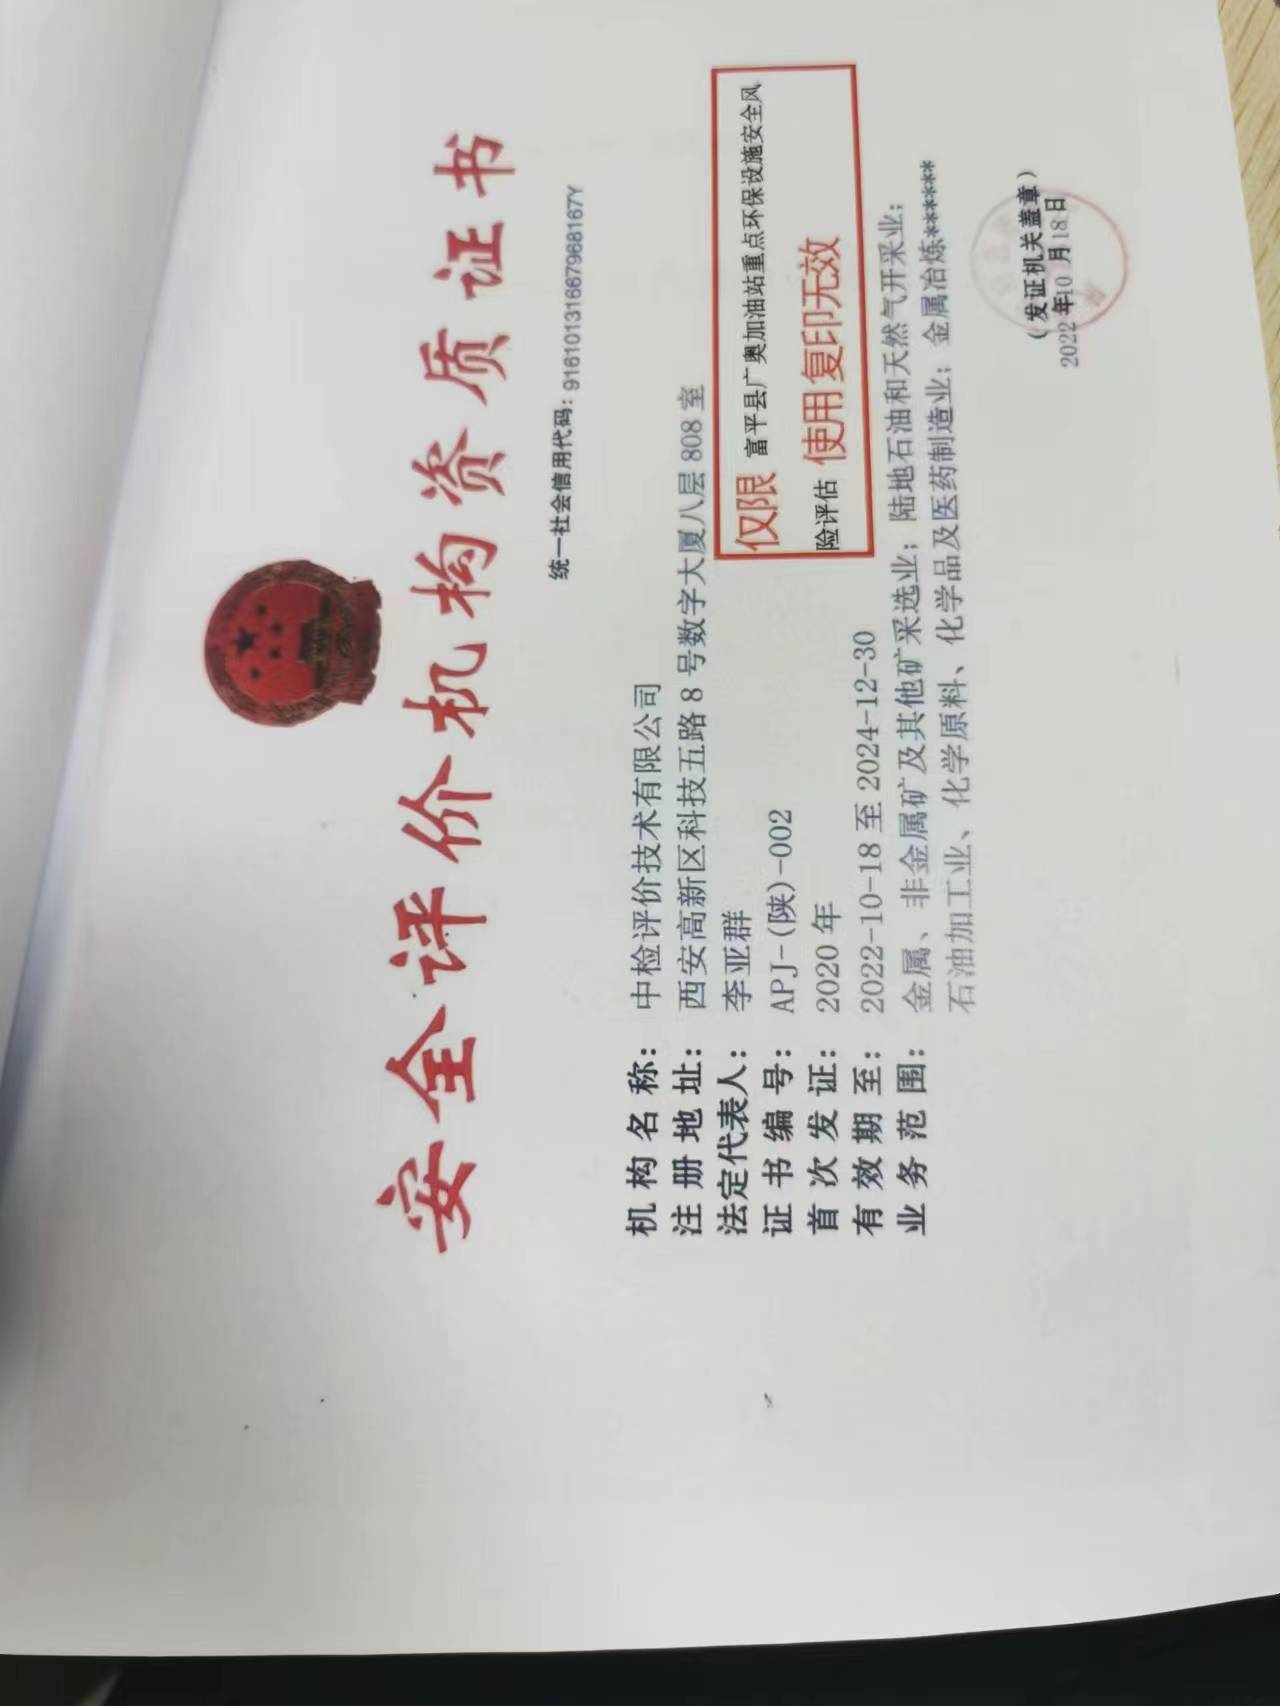 安全评价机构资质证书
统一社会信用代码：91610131667968167Y
机构名称：中检评价技术有限公司
注册地址：西安高新区科技五路8号数字大厦八层808室
法定代表人：李亚群
证书编号：APJ-(陕)-002
首次发证：2020年
有效期至：2022-10-18至2024-12-30
业务范围：金属、非金属矿及其他矿采选业；陆地石油和天然气开采业；
石油加工业、化学原料、化学品及医药制造业；金属冶炼******
仅限 富平县广奥加油站重点环保设施安全风
险评估 使用复印无效
（发证机关盖章）
2022年10月18日